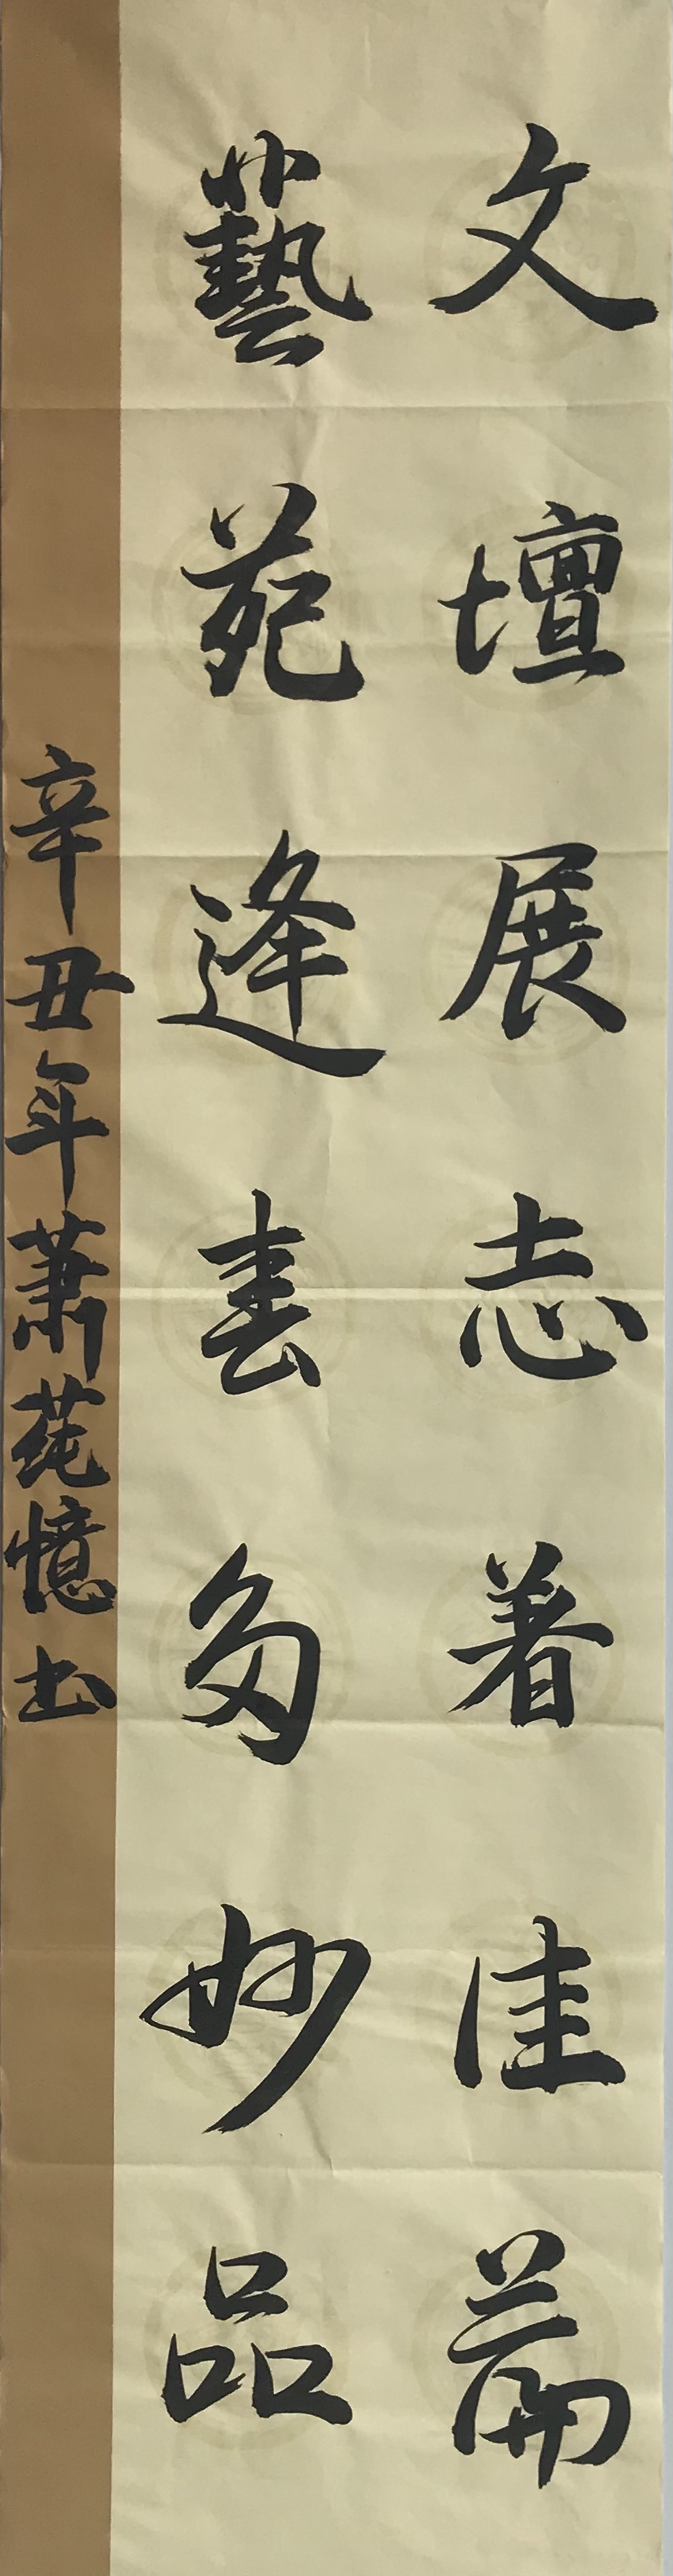 文壇展志著佳篇
藝苑逢春多妙品
辛丑年蕭莼憶书